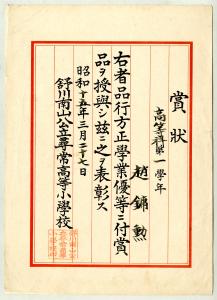 賞狀
高等科第一學年
趙鏞勲
右者品行方正學業優等ニ付賞
品ヲ授與シ玆ニ之ヲ表彰ス
昭和十五年三月二十七日
舒川南山公立尋常高等小學校